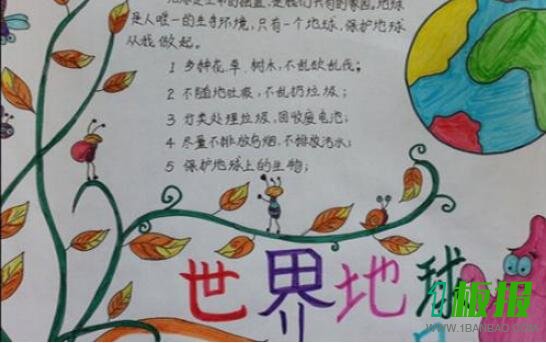 地球是生命的摇篮，是我们共有的家园。地球
是人唯一的生存环境，只有一个地球，保护地球
从我做起。
1 多种花、草、树木，不乱砍乱伐；
2 不随地吐痰，不乱扔垃圾；
3 分类处理垃圾，回收废电池；
4 尽量不排放乌烟，不排放污水；
5 保护地球上的生物；
世界地球
1板报
WWW.1BANBAO.COM